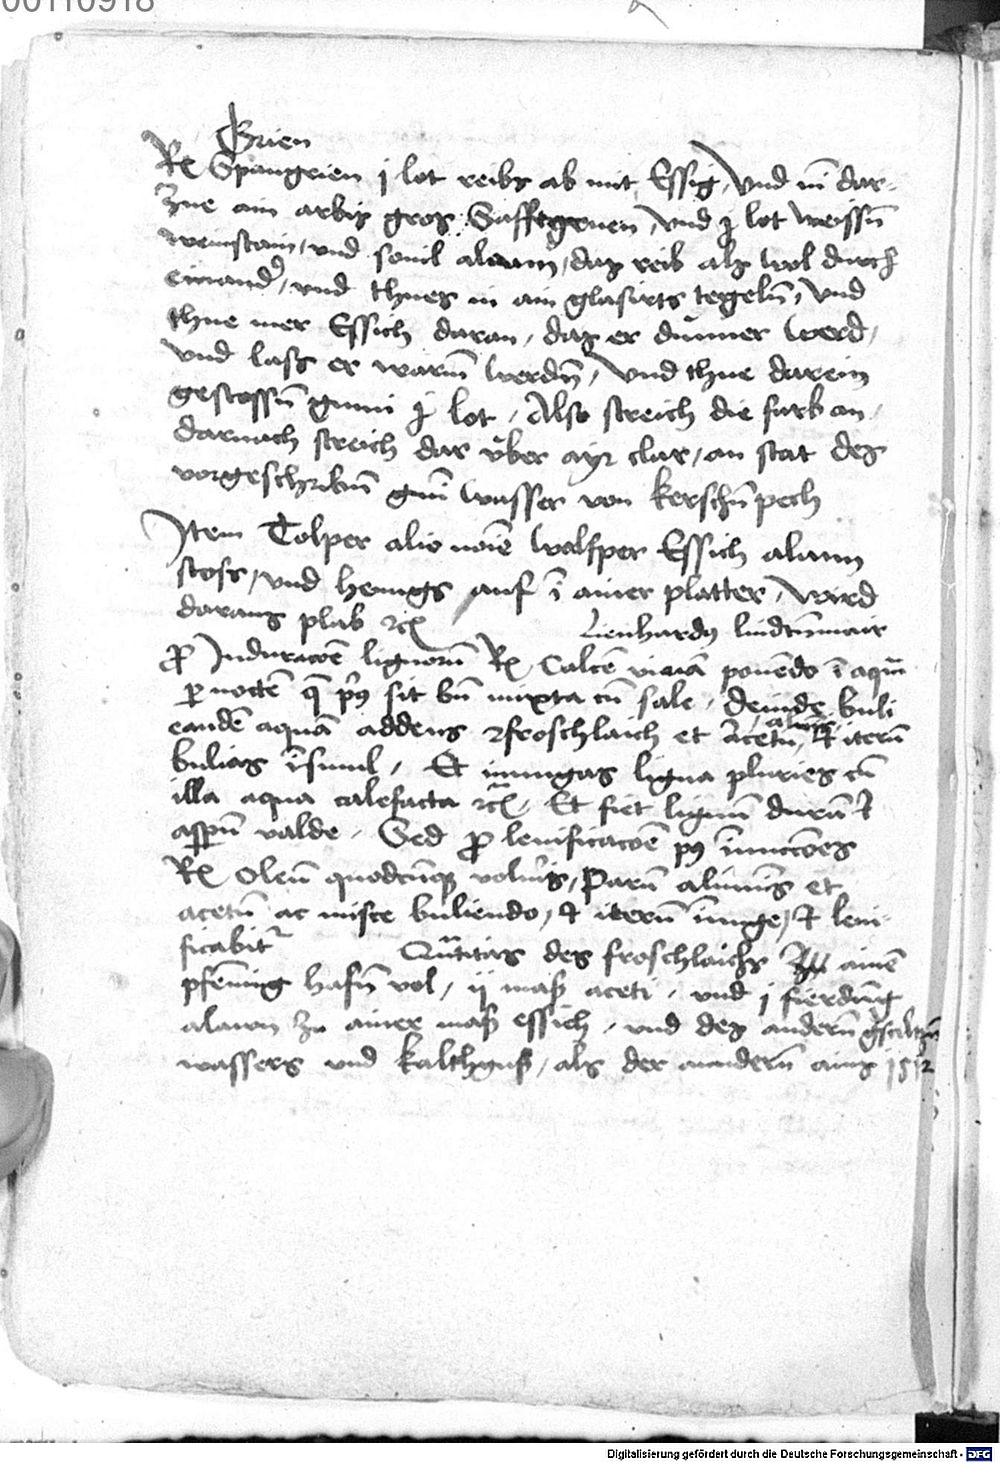 00110918
Grien
Rx Spangrien j lot reibs ab mit Essig, Und nim̄ dar-
Zue ain arbis gros Safftgruen, und j lot weissn̄
weinstain, und souil alaun, das reib als wol durch
einand', und thues in ain glasurts tegeln̄, Und
thue mer Essich daran, das er dünner werd,
und lass er warm̄ werdn̄, Und thue darein
gestossn̄ gumi j lot, Also streich die farb an,
darnach streich dar über ayr clar, an stat des
vorgeschribnn̄ gum̄i wasser von kerschn̄ pech
Item Tolper alio noīe walsper Essich alaun
stoss, und henngs auf ī ainer platter, wird
daraus plab rc
Lienhardus
pro Induracōe lignorū Rx Calcē viuā ponēdo ī aquā
per noctē q̄ prius sit bn̄ mixta cū sale, deinde buli
eandē aquā addens froschlaich et acetū, alumē et iterū
bulias īsimul, Et inungas ligna pluries cū
illa aqua calefacta rc, Et fiet lignū durū et
asperū valde, Sed pro leuificacōe post īunccōes
Rx Oleū quodcūque volueris, Parū aluminis et
acetū ac misce buliendo, et iterū īunge, et leui-
ficabitur
Quātitas des froschlaichs ainē
pfenning hafn̄ vol, ij mass aceti, und j fierdūng
alawn zu ainer mass essich, und des andern̄
wassers und kalthguss, als der anndern̄ ains 1512
Digitalisierung gefördert durch die Deutsche Forschungsgemeinschaft - DFG